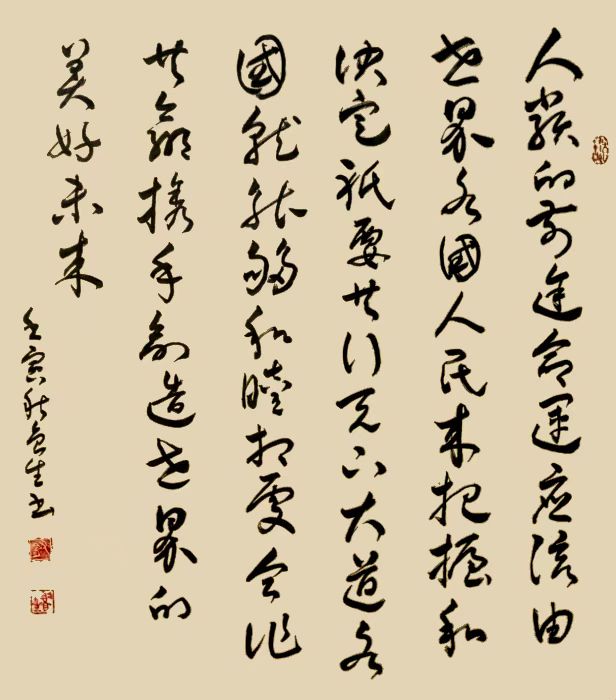 人類的前途命運應該由
世界各國人民来把握和
決定祇要共行天下大道各
國就能夠和睦相處合作
共贏攜手創造世界的
美好未来
壬寅秋生书